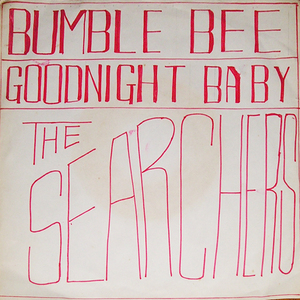 BUMBLE BEE
GOODNIGHT BABY
THE
SEARCHERS